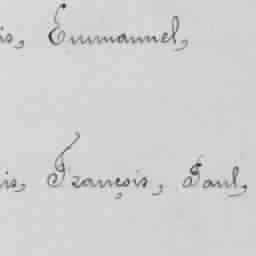 is, Emmanuel,
is, François, Paul,